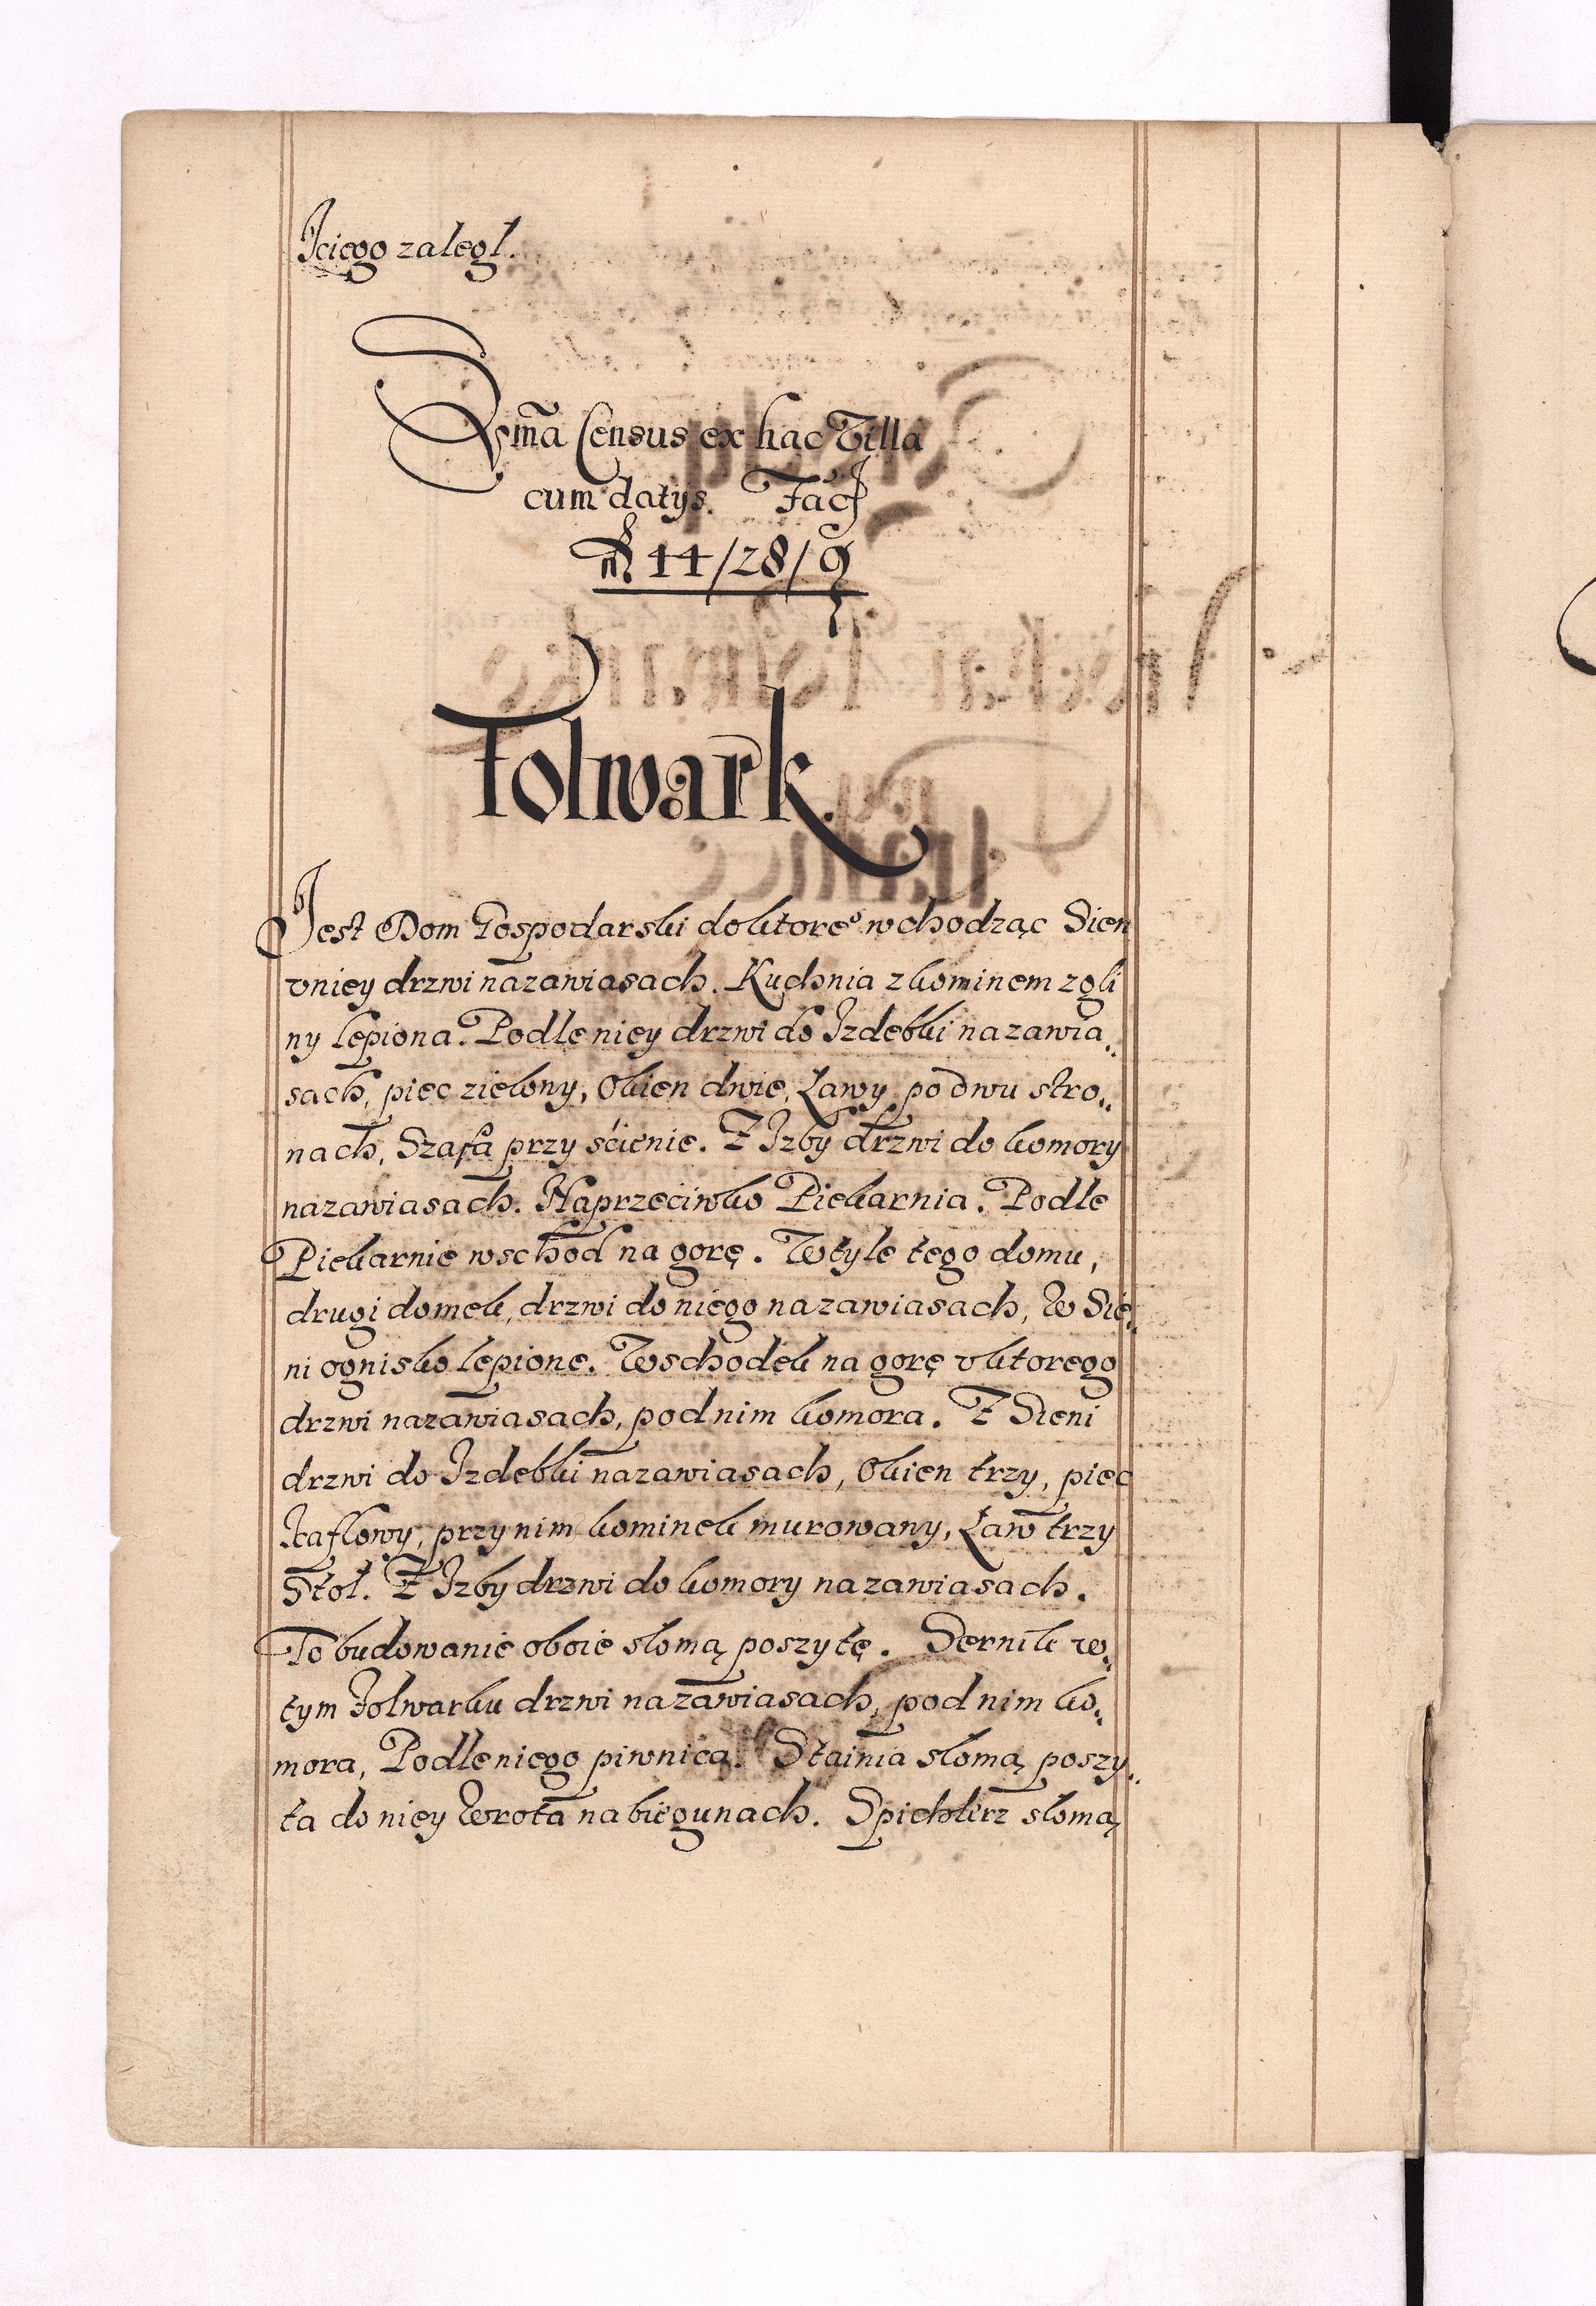 Jciego zalegl.
Sum̃a Census ex hac Villa
cum datys. Facĭt
fl 44/28/9
Folwark.
Jest Dom Gospodarski do ktoreº wchodząc Sien
vniey drzwi na zawiasach. Kuchnia z kominem z gli
ny lepiona. Podle niey drzwi do Jzdebki na zawia„
sach, piec zielony, Okien dwie, Ławy po dwu stro„
nach, Szafa przy ścienie. Z Jzby drzwi do komory
na zawiasach. Naprzeciwko Piekarnia. Podle
Piekarnie wschod na gorę. W tyle tego domu,
drugi domek, drzwi do niego na zawiasach, W Sie„
ni ognisko lepione. Wschodek na gorę v ktorego
drzwi na zawiasach, pod nim komora. Z Sieni
drzwi do Jzdebki na zawiasach, Okien trzy, piec
kaflowy, przy nim kominek murowany, Ław trzy
Stoł. Z Jzby drzwi do komory na zawiasach.
To budowanie oboie słomą poszytę. Sernik w„
tym Folwarku drzwi na zawiasach, pod nim ko„
mora, Podle niego piwnica. Stainia słomą poszy„
ta do niey Wrota na biegunach. Spichlirz słomą